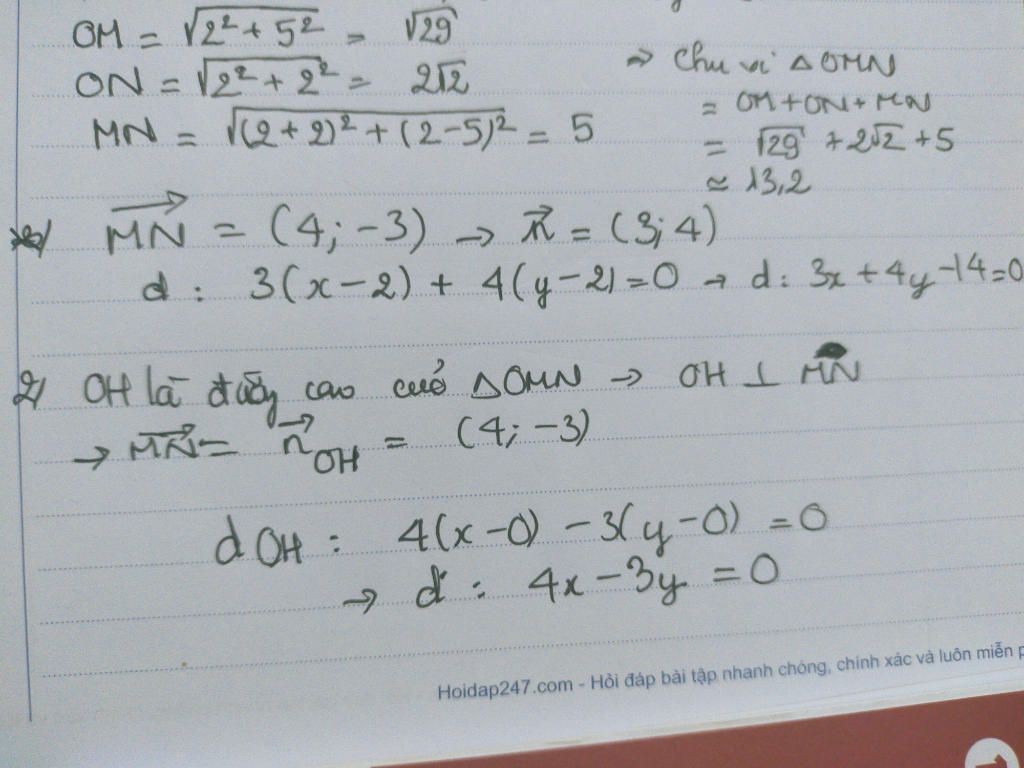 OM = √(2² + 5²) = √29
ON = √(2² + 2²) = 2√2
MN = √((2+2)² + (2-5)²) = 5
⇒ Chu vi ΔOMN
= OM + ON + MN
= √29 + 2√2 + 5
≈ 13,2
MN = (4; -3) → n = (3; 4)
d : 3(x-2) + 4(y-2) = 0 → d: 3x + 4y - 14 = 0
2/ OH là đường cao của ΔOMN → OH ⊥ MN
→ MN = n OH = (4; -3)
d OH : 4(x-0) - 3(y-0) = 0
→ d : 4x - 3y = 0
Hoidap247.com - Hỏi đáp bài tập nhanh chóng, chính xác và luôn miễn